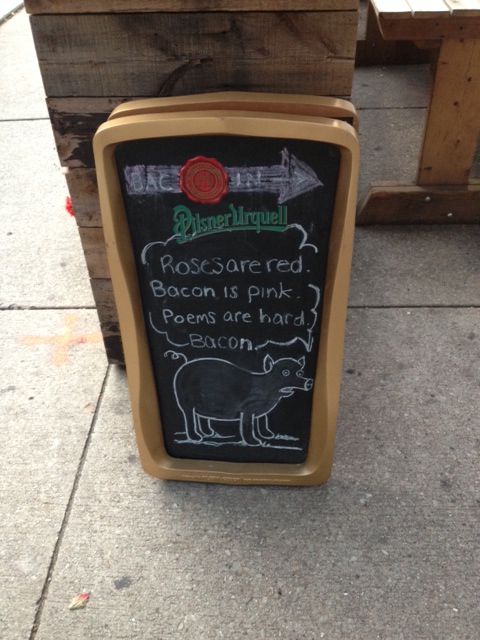 BAC IN
Pilsner Urquell
Roses are red.
Bacon is pink.
Poems are hard.
Bacon.